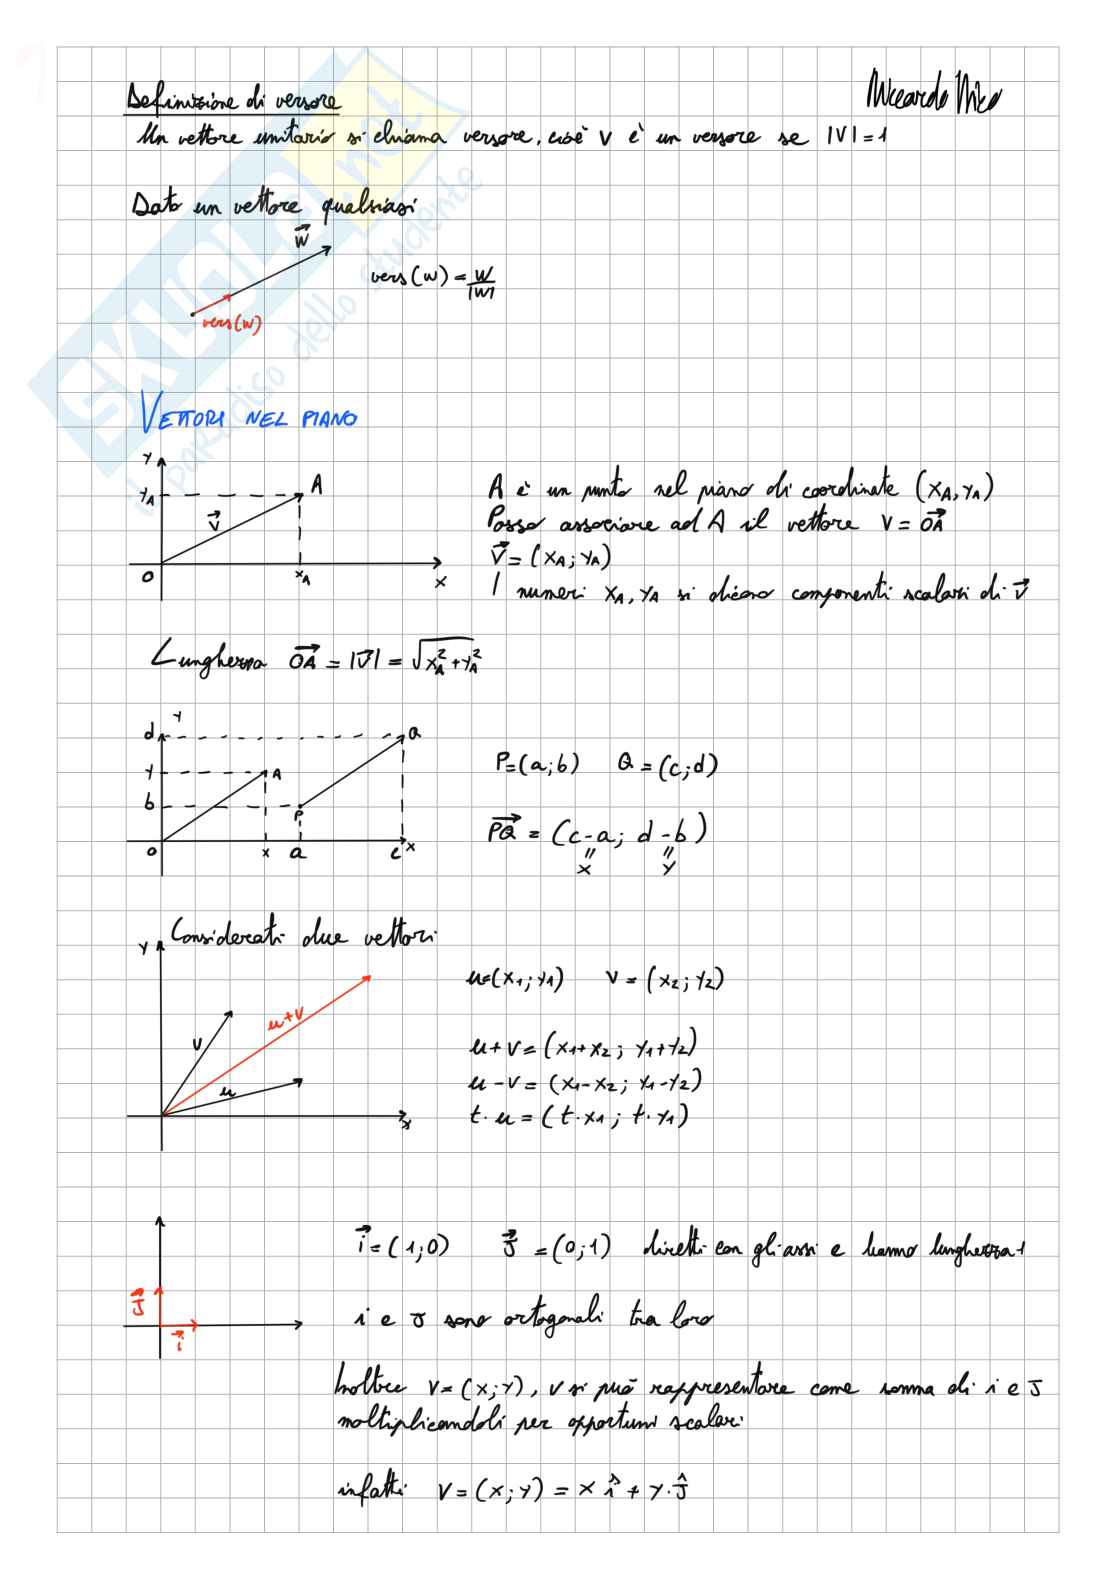 Definizione di versore
Riccardo Nico
Un vettore unitario si chiama versore, cioè v è un versore se |V| = 1
Dato un vettore qualsiasi
W
vers(w)
vers(w) = W/|W|
VETTORI NEL PIANO
Y
YA
A
V
O
XA
X
A è un punto nel piano di coordinate (XA, YA)
Posso associare ad A il vettore V = OA
V = (XA; YA)
I numeri XA, YA si dicono componenti scalari di V
Lunghezza OA = |V| = √(XA² + YA²)
Y
d
Q
Y
A
b
P
O
x
a
c
x
P=(a;b) Q=(c;d)
PQ = (c-a; d-b)
" "
X Y
Considerati due vettori
Y
V
u+v
u
x
u=(X1; Y1) V=(X2; Y2)
u+v=(X1+X2; Y1+Y2)
u-v=(X1-X2; Y1-Y2)
t·u=(t·X1; t·Y1)
J
i
i=(1;0) J=(0;1) diretti con gli assi e hanno lunghezza 1
i e J sono ortogonali tra loro
Inoltre V=(X;Y), v si può rappresentare come somma di i e J
moltiplicandoli per opportuni scalari
infatti V=(X;Y) = X î + Y·Ĵ
SKUOLA.net
il paradiso dello studente